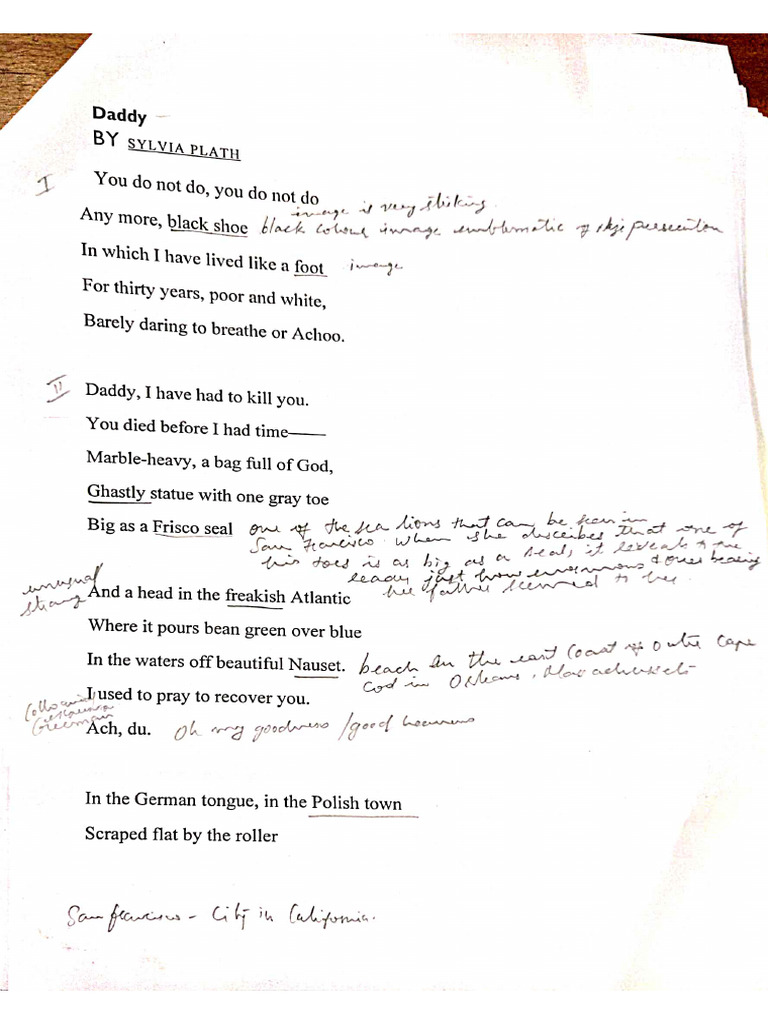 Daddy
BY SYLVIA PLATH
I
You do not do, you do not do
image is very striking.
Any more, black shoe black colour image emblematic of persecution
In which I have lived like a foot image
For thirty years, poor and white,
Barely daring to breathe or Achoo.
II
Daddy, I have had to kill you.
You died before I had time——
Marble-heavy, a bag full of God,
Ghastly statue with one gray toe
Big as a Frisco seal one of the sea lions that can be seen in
San Francisco. When she describes that one of
his toes is as big as a seal, it reveals to the
reader just how enormous & overbearing
her father seemed to her.
unusual
strang
And a head in the freakish Atlantic
Where it pours bean green over blue
In the waters off beautiful Nauset. beach in the east coast of outer Cape
Cod in Orleans, Massachusetts
I used to pray to recover you.
German
Ach, du. Oh my goodness /good heavens
In the German tongue, in the Polish town
Scraped flat by the roller
San francisco - City in California.